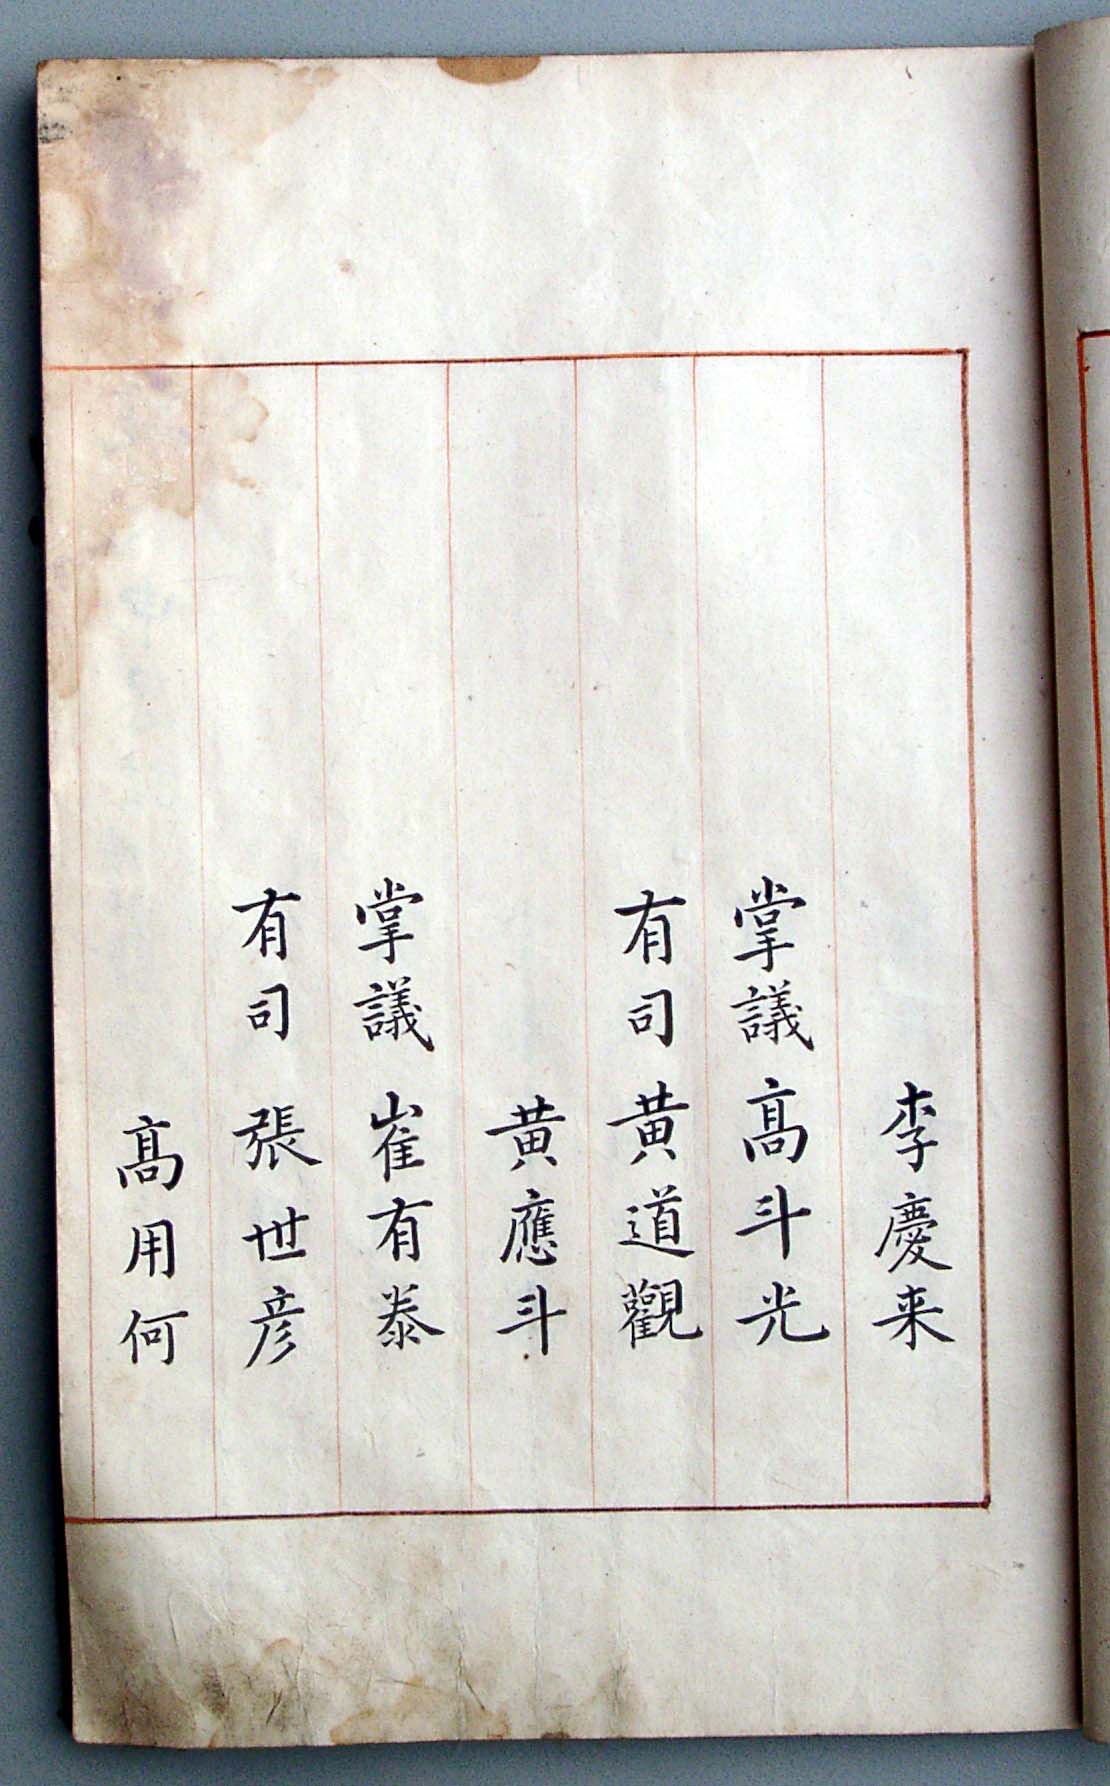 李慶来
掌議 髙斗光
有司 黄道觀
黄應斗
掌議 崔有泰
有司 張世彦
髙用何